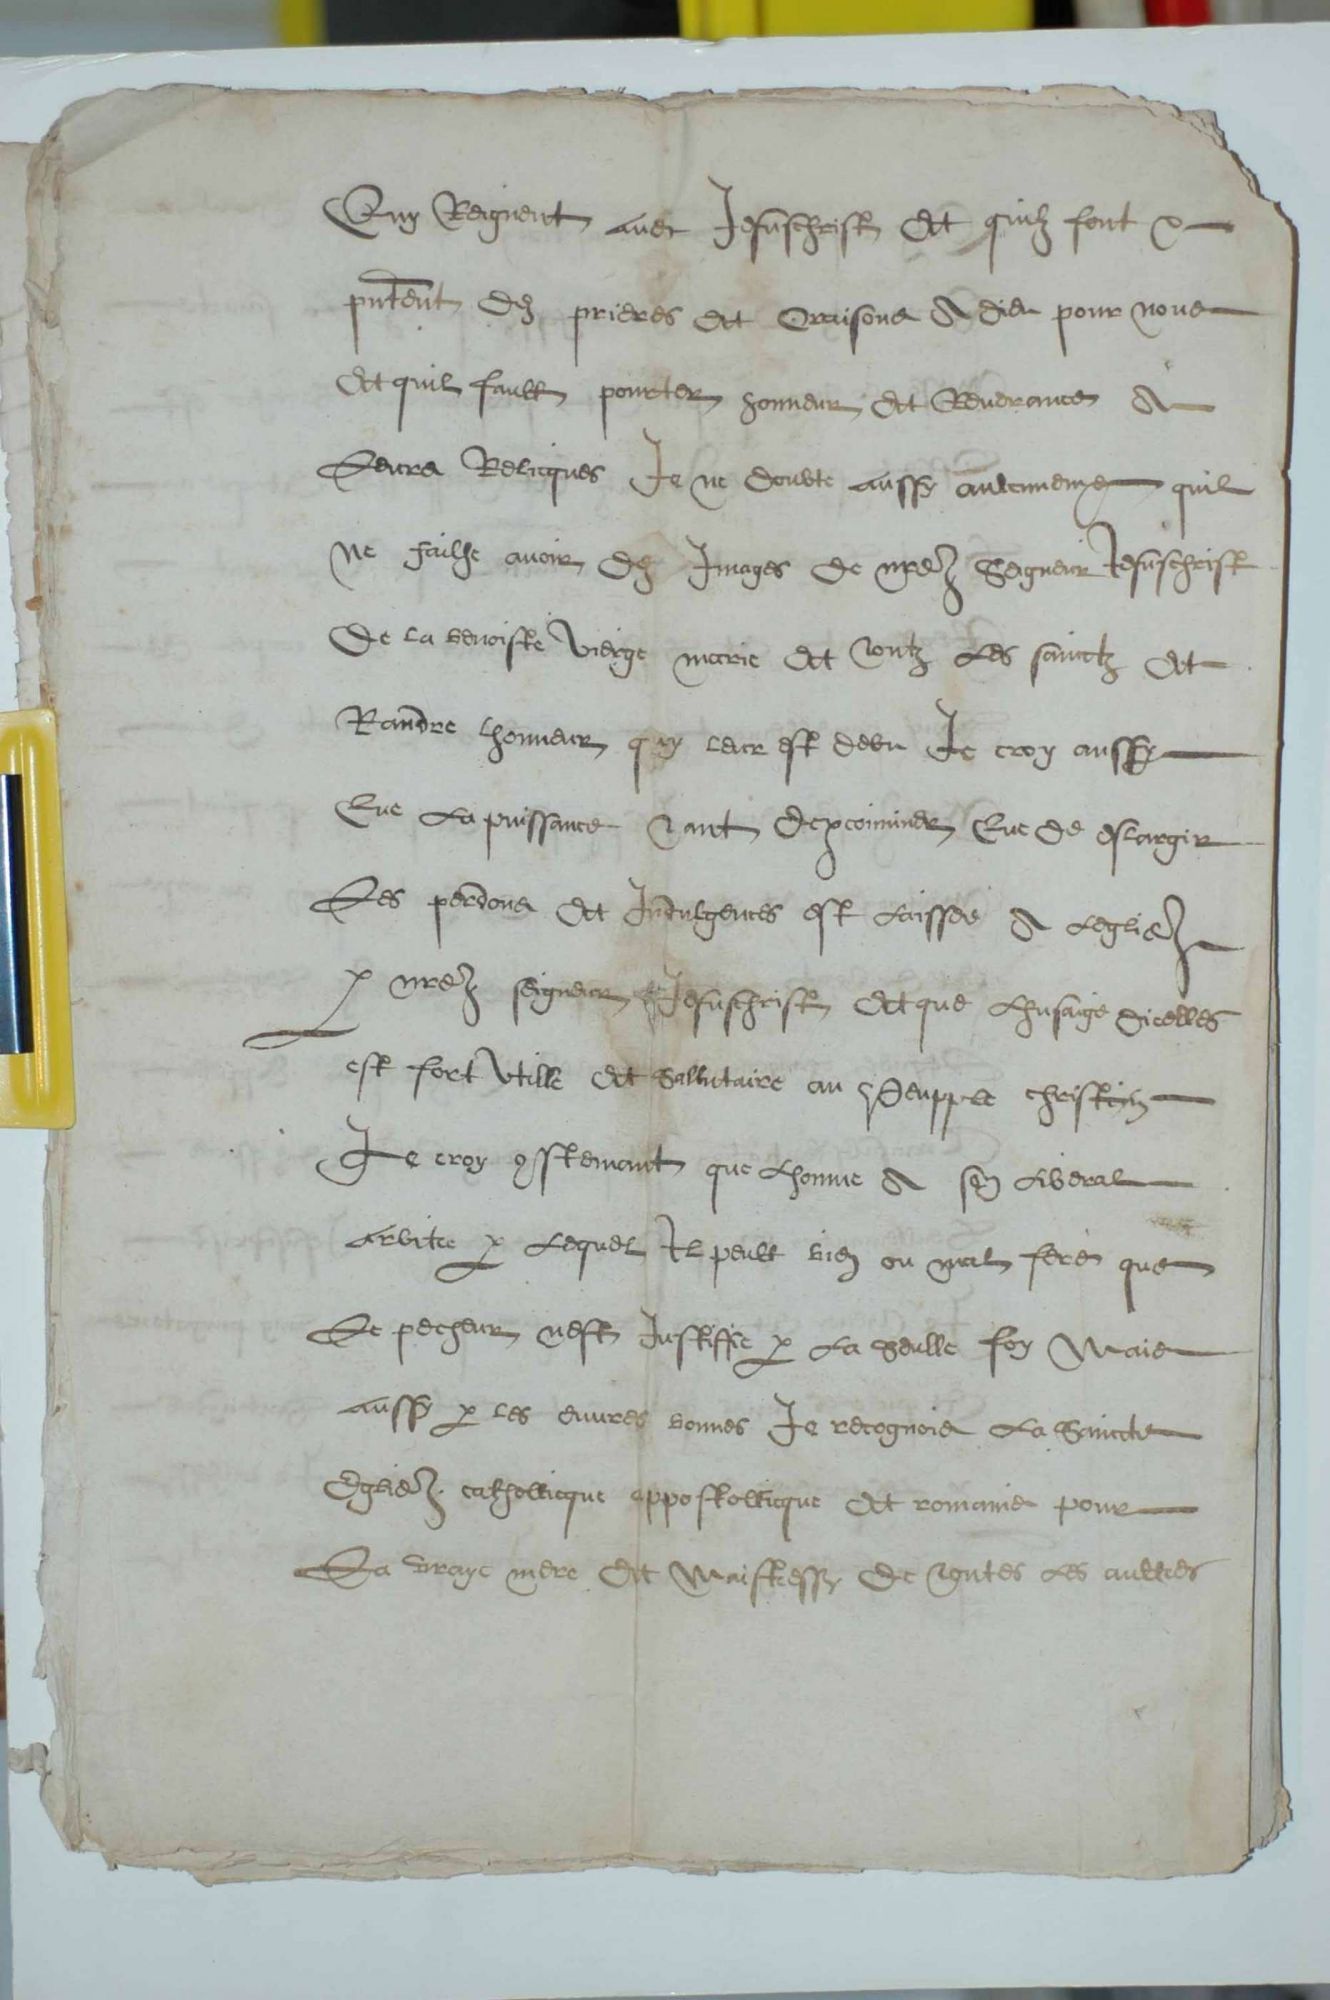 Quy Reignent avec Jesuschrist Et quilz font &
pntent Des prieres Et Oraisons A dieu pour nous
Et quil fault pourter honneur Et Reverance A
Leurs Relicques Je ne doubte aussy aulcunement quil
ne failhe avoir Des Images de nre Seigneur Jesuschrist
De la benoiste vierge marie Et toutz Les sainctz Et
Randre lhonneur quy leur est debu Je croy aussy
Que La puissance tant dexcominier Que de eslargir
Les perdons Et Indulgences est Laissee A Leglise
p nre seigneur Jesuschrist Et que Lhusaige dicelles
est fort utille Et Sallutaire au Peupple christien
Je croy constemant que Lhomme A son Liberal
arbitre p Lequel Il peult bien ou mal fere que
Le pecheur nest Justiffie p La Seulle foy Mais
aussy p les euvres bonnes Je recognois La Saincte
Eglise catholicque appostollicque Et romaine pour
La vraye mere Et Maistresse De toutes Les aultres